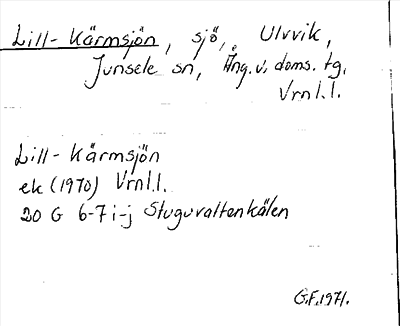 Lill-Kärmsjön, sjö, Ulvvik,
Junsele sn, Ång.v. doms. tg.
Vrnl.l.
Lill-Kärmsjön
ek (1970) Vrnl.l.
20 G 6-7 i-j Stuguvattenkälen
G.F. 1971.